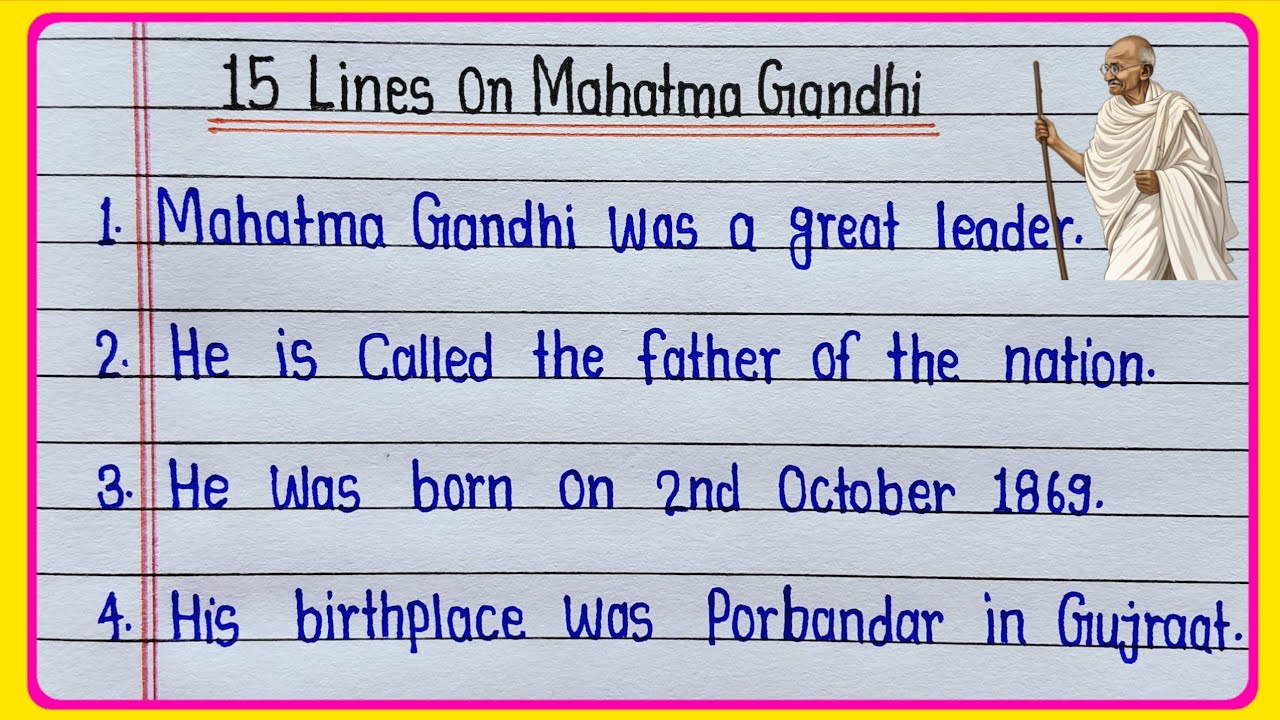 15 Lines On Mahatma Gandhi
1. Mahatma Gandhi was a great leader.
2. He is Called the father of the nation.
3. He was born on 2nd October 1869.
4. His birthplace was Porbandar in Gujraat.